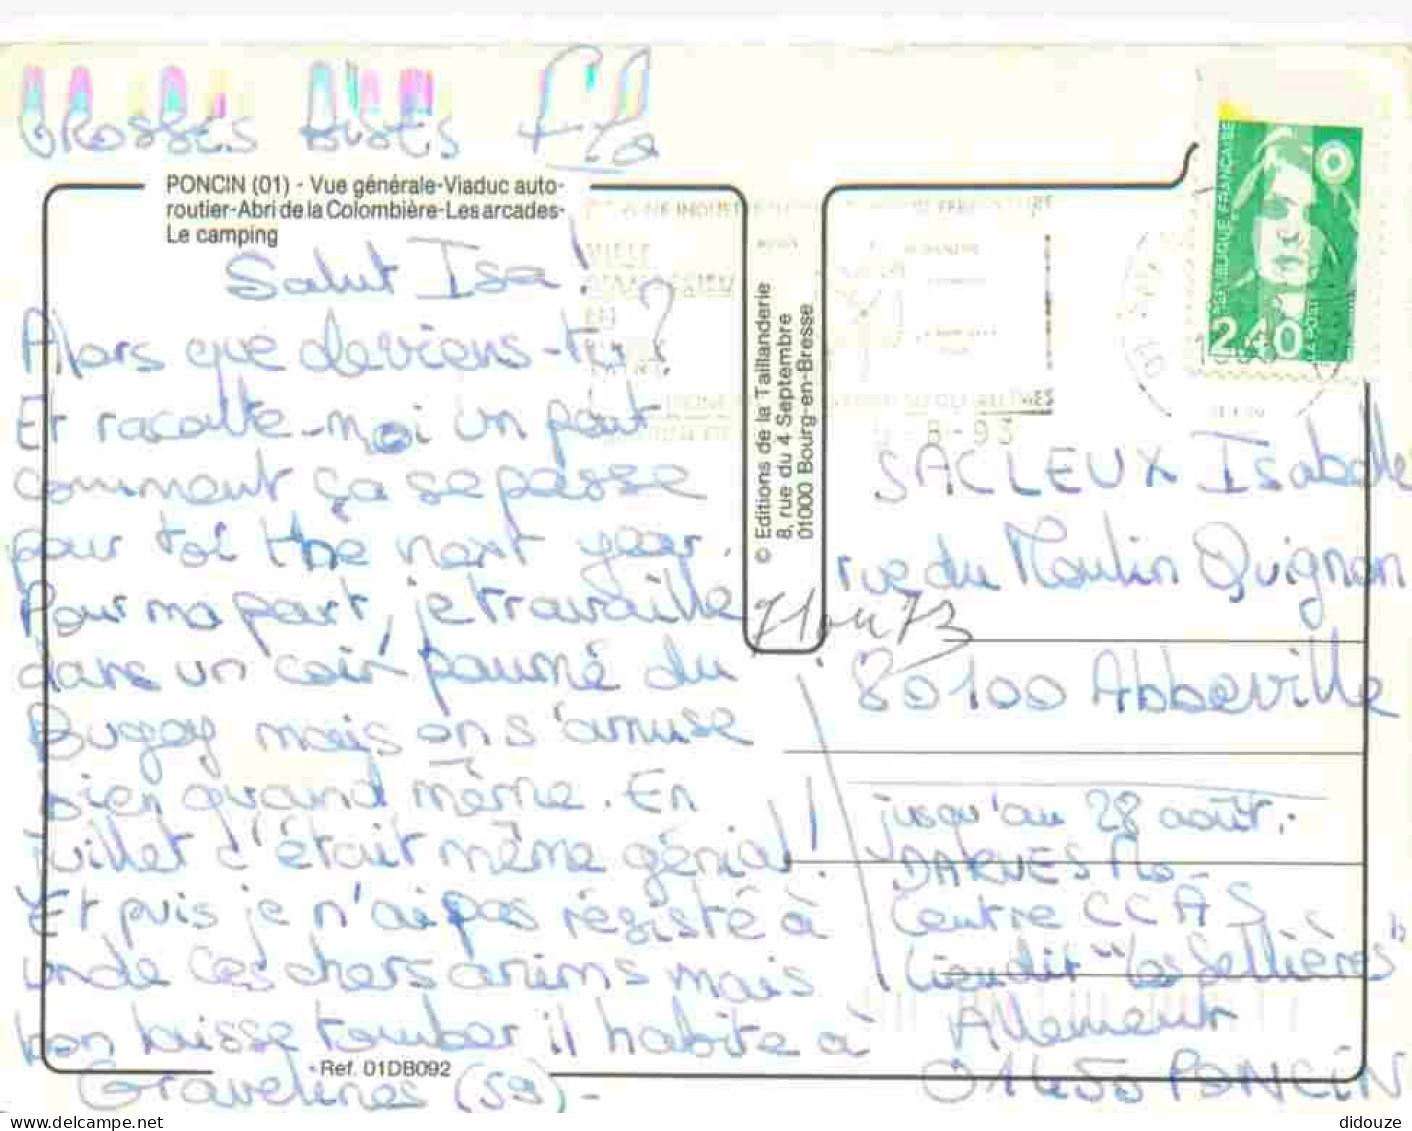 GROSSES BISES Flo
PONCIN (01) - Vue générale-Viaduc auto-
routier-Abri de la Colombière-Les arcades-
Le camping
Salut Isa !
Alors que deviens-tu ?
Et racolte-moi un peut
comment ça se passe
pour toi the next year.
Pour ma part, je travaille
dans un coin paumé du
Bugey mais on s'amuse
bien quand même. En
juillet c'était même génial !
Et puis je n'ai pas résisté à
un de ces chers anims mais
bon laisse tomber il habite à
Gravelines (59) -
Ref. 01DB092
© Editions de la Taillanderie
8, rue du 4 Septembre
01000 Bourg-en-Bresse
REPUBLIQUE FRANÇAISE
2,40
LA POSTE
SACLEUX Isabelle
71 ou 73
rue du Moulin Quignon
80100 Abbeville
jusqu'au 28 août :
DARNES Flo -
Centre CCAS
Lieudit "Les Sellières"
Allement
01450 PONCIN
didouze